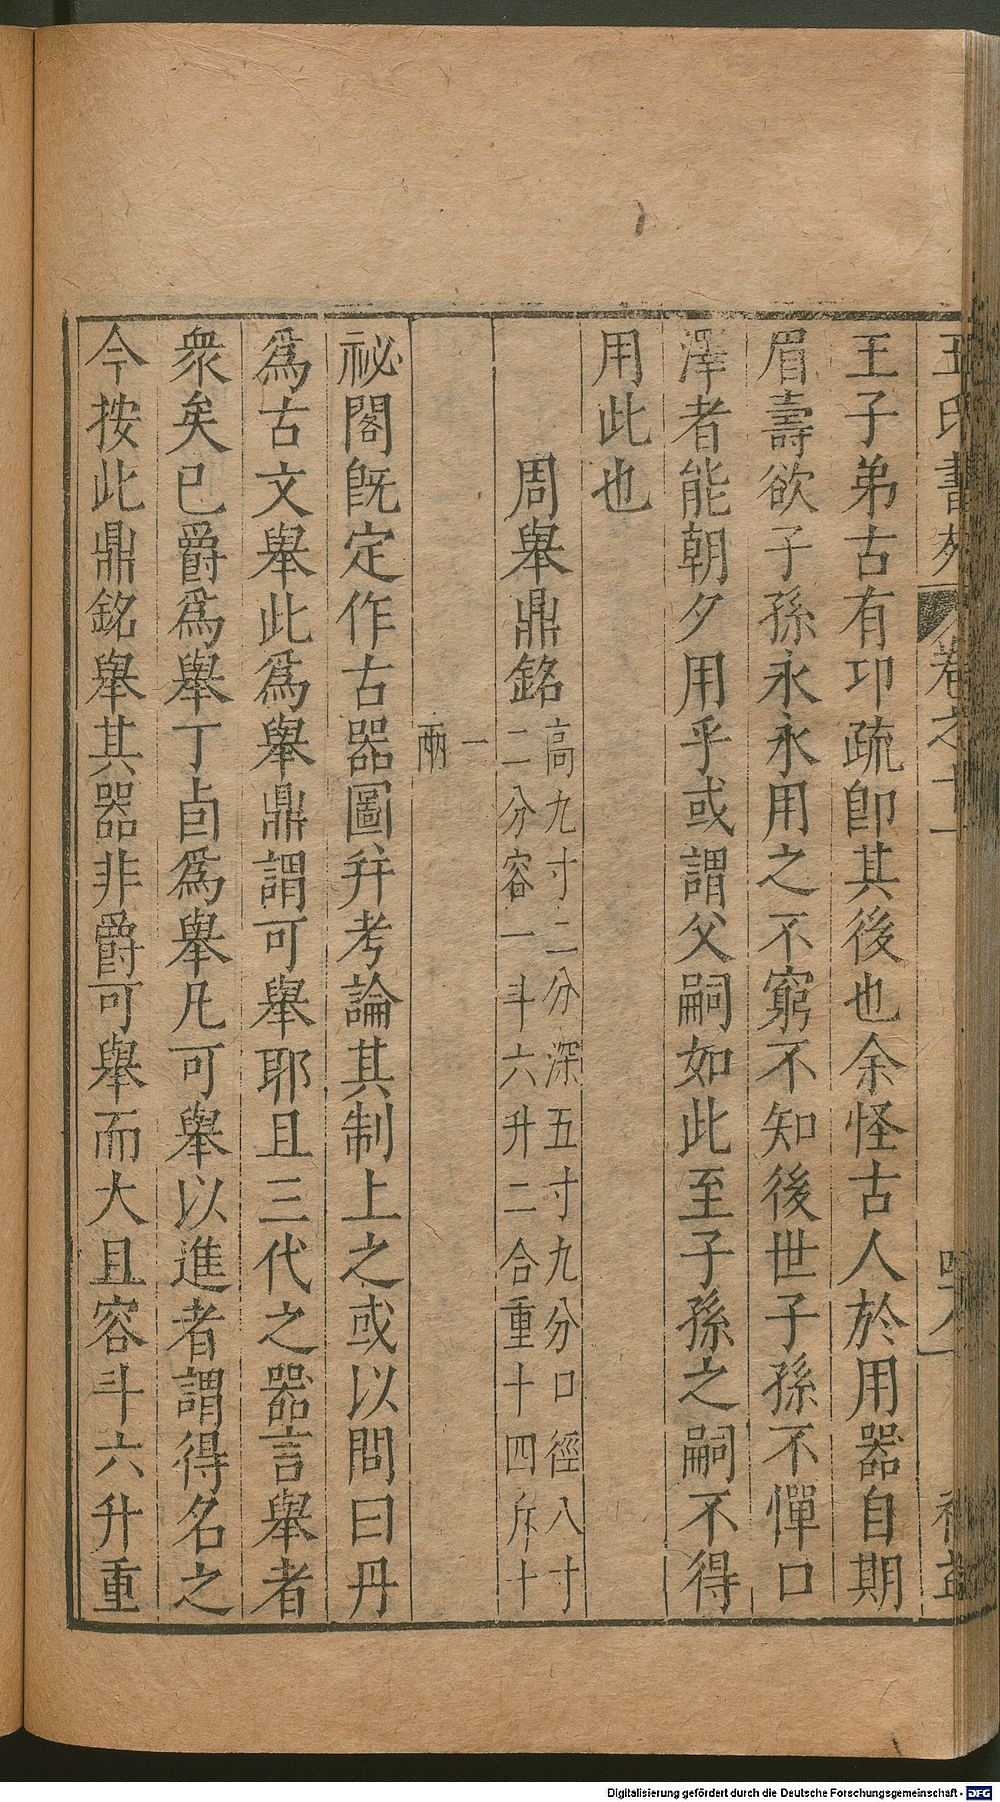 王氏書苑 卷之十一
王子弟古有卭疏卽其後也余怪古人於用器自期
眉壽欲子孫永永用之不窮不知後世子孫不憚口
澤者能朝夕用乎或謂父嗣如此至子孫之嗣不得
用此也
周舉鼎銘
高九寸二分深五寸九分口徑八寸
二分容一斗六升二合重十四斤十
一
兩
祕閣旣定作古器圖幷考論其制上之或以問曰丹
爲古文舉此爲舉鼎謂可舉耶且三代之器言舉者
衆矣已爵爲舉丁卣爲舉凡可舉以進者謂得名之
今按此鼎銘舉其器非爵可舉而大且容斗六升重
Digitalisierung gefördert durch die Deutsche Forschungsgemeinschaft - DFG